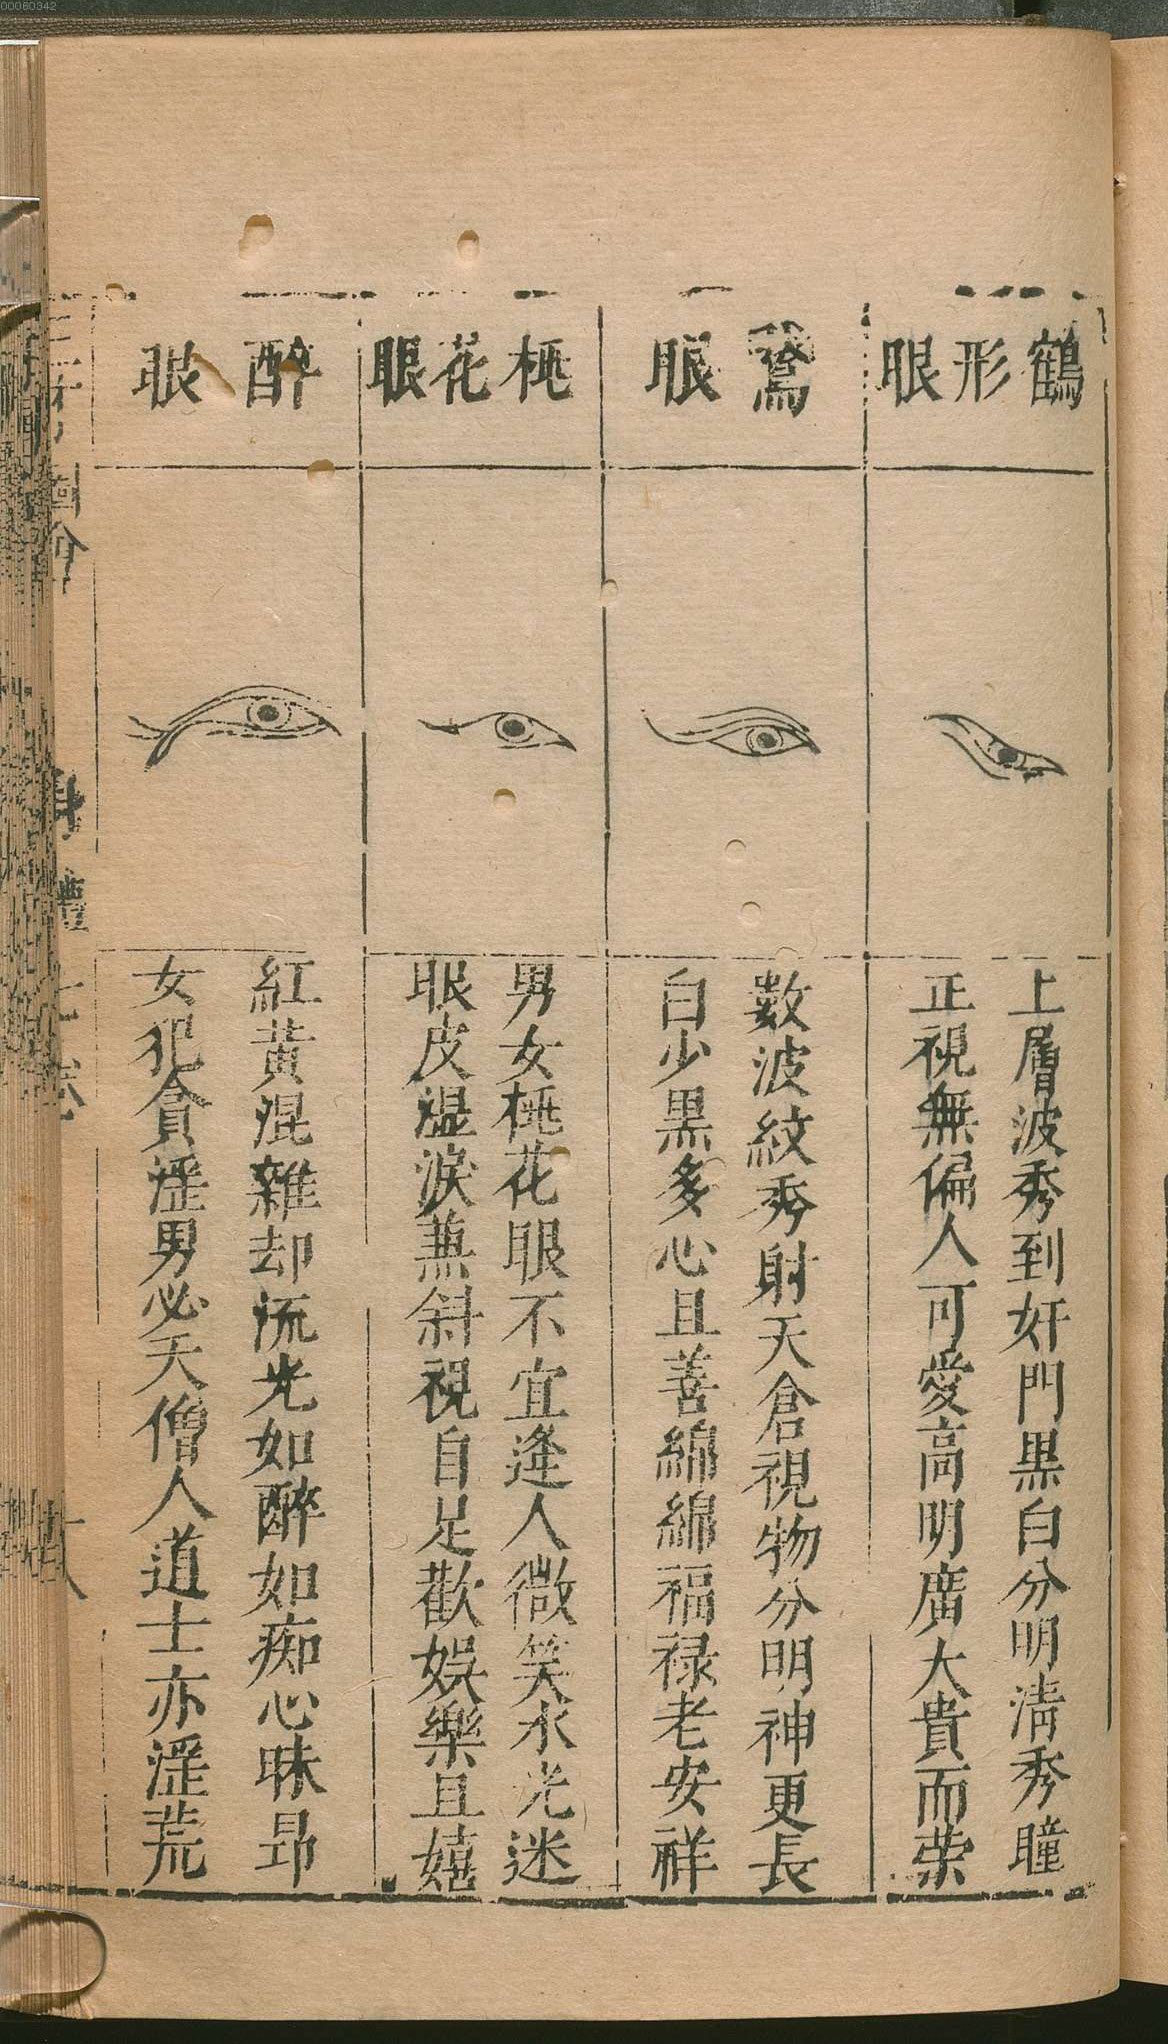 00060342
鶴形眼
上層波秀到奸門黒白分明淸秀瞳
正視無偏人可愛高明廣大貴而荣
鵞眼
數波紋秀射天倉視物分明神更長
白少黒多心且善綿綿福禄老安祥
桃花眼
男女桃花眼不宜逢人微笑水光迷
眼皮湿淚兼斜視自足歡娯樂且嬉
醉眼
紅黃混雜却流光如醉如痴心昧昻
女犯貪淫男必夭僧人道士亦淫荒
三才圖會
身體七卷